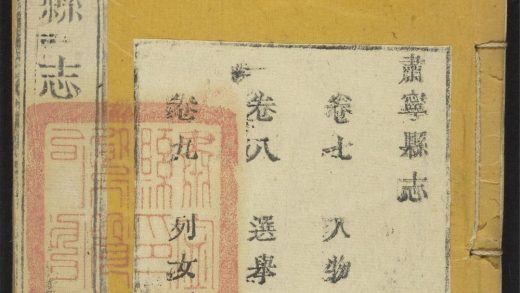 肅寧縣志
卷七 人物
卷八 選舉
卷九 列女
縣志